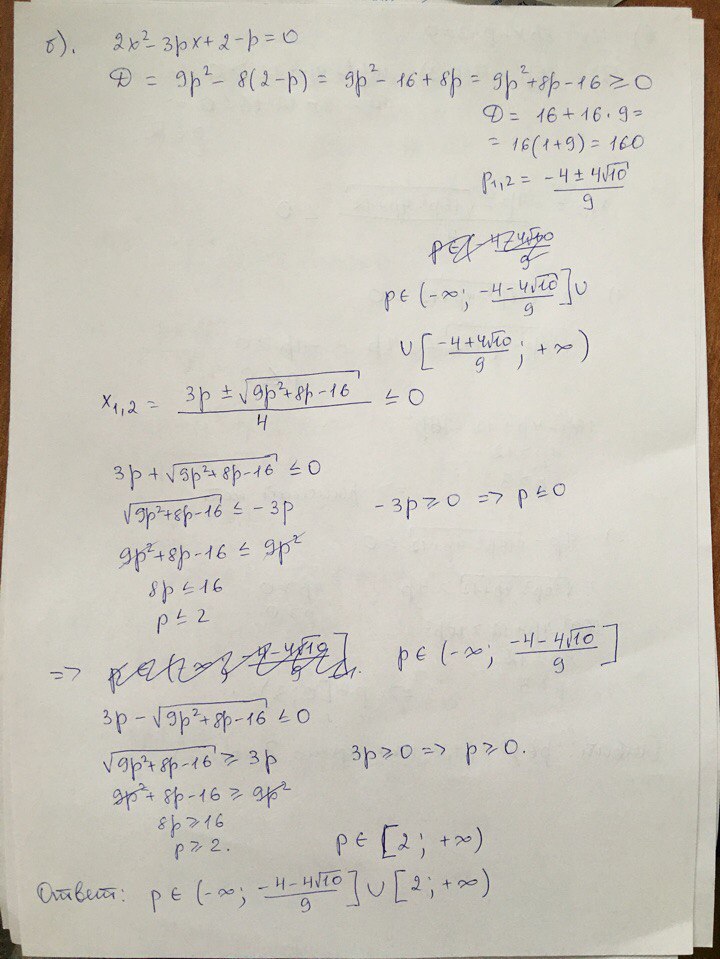 б). 2x² - 3px + 2 - p = 0
D = 9p² - 8(2-p) = 9p² - 16 + 8p = 9p² + 8p - 16 ≥ 0
D = 16 + 16 · 9 =
= 16(1+9) = 160
p₁,₂ = (-4 ± 4√10)/9
p ∈ (-∞; (-4-4√10)/9] ∪
∪ [(-4+4√10)/9; +∞)
x₁,₂ = (3p ± √(9p²+8p-16))/4 ≤ 0
3p + √(9p²+8p-16) ≤ 0
√(9p²+8p-16) ≤ -3p -3p ≥ 0 => p ≤ 0
9p² + 8p - 16 ≤ 9p²
8p ≤ 16
p ≤ 2
=> p ∈ (-∞; (-4-4√10)/9]
3p - √(9p²+8p-16) ≤ 0
√(9p²+8p-16) ≥ 3p 3p ≥ 0 => p ≥ 0.
9p² + 8p - 16 ≥ 9p²
8p ≥ 16
p ≥ 2. p ∈ [2; +∞)
Ответ: p ∈ (-∞; (-4-4√10)/9] ∪ [2; +∞)